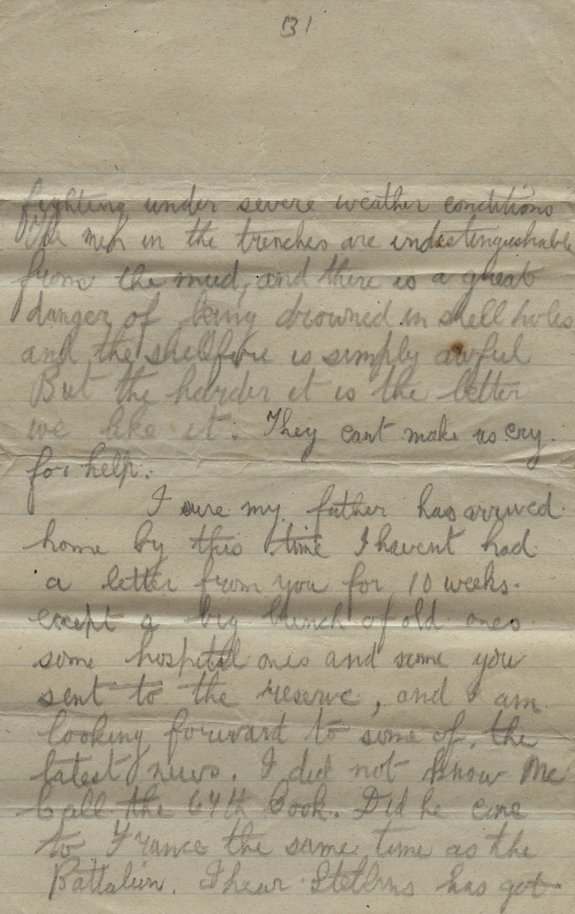 131
fighting under severe weather conditions
The men in the trenches are indestinguishable
from the mud, and there is a great
danger of being drowned in shell holes
and the shellfire is simply awful
But the harder it is the better
we like it. They cant make us cry
for help.
I sure my father has arrived
home by this time I havent had
a letter from you for 10 weeks.
except a big bunch of old ones
some hospital ones and some you
sent to the reserve, and I am
looking forward to some of the
latest news. I did not know Mc
Call the 64th Cook. Did he come
to France the same time as the
Battalion. I hear has got